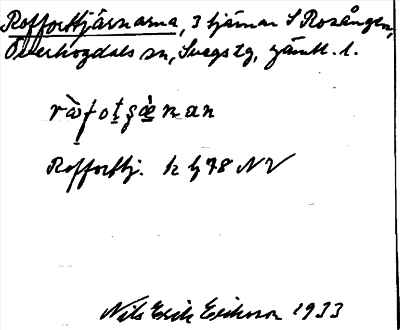 Rofforttjärnarna, 3 tjärnar S Rosången,
Överhogdals sn, Svegs tg, Jämtl. l.
rå̀fotşæ̀nan
Rofforttj. k bl 98 NV
Nils Erik Erikson 1933